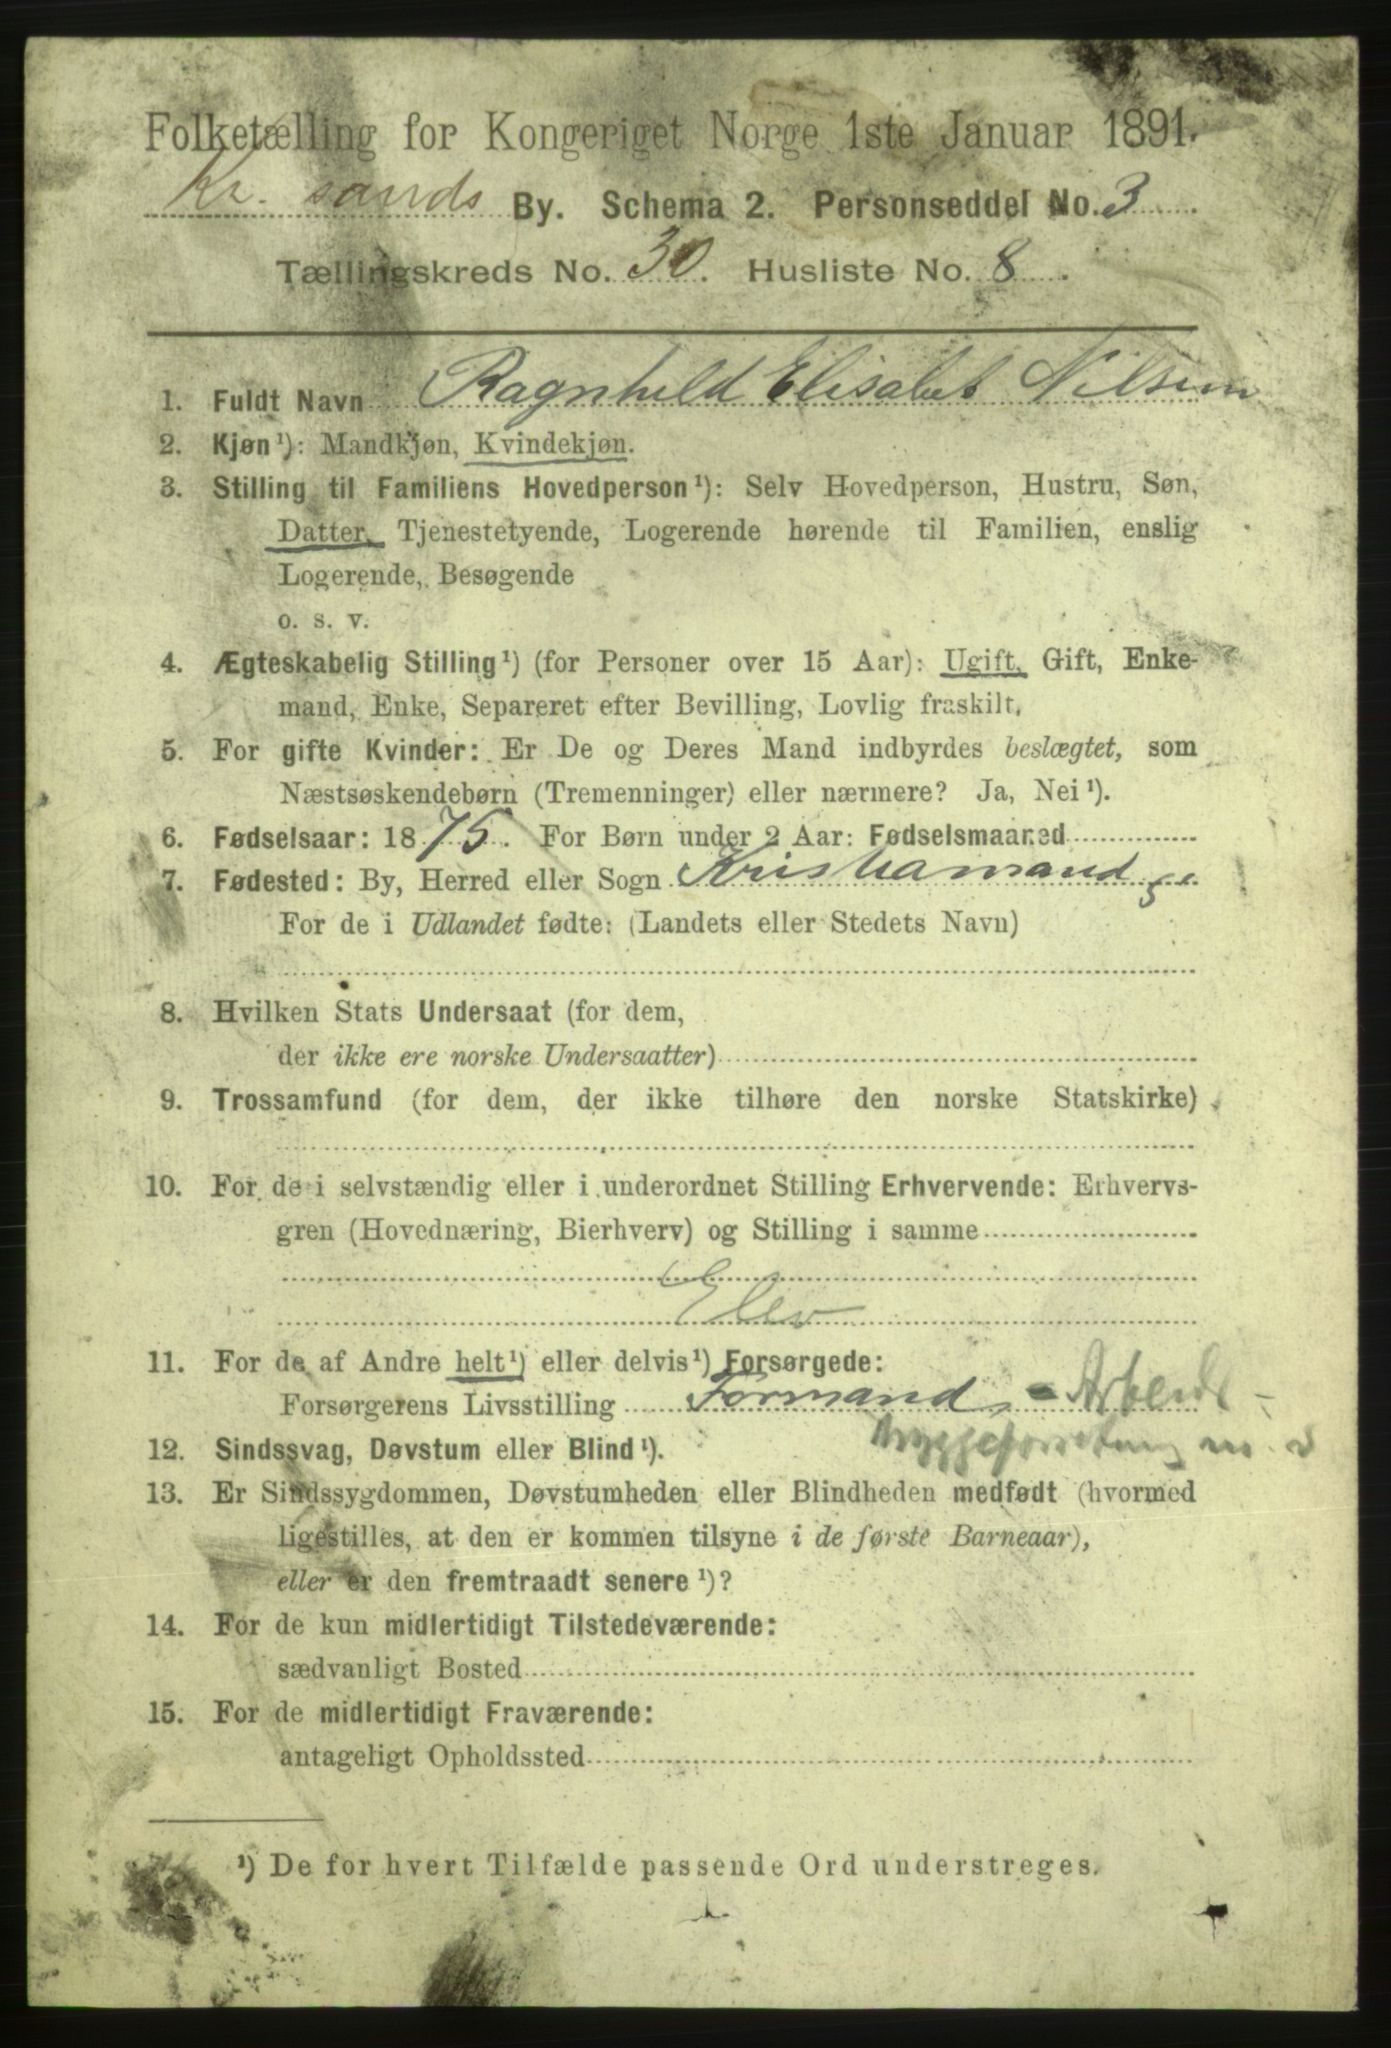 Folketælling for Kongeriget Norge 1ste Januar 1891.
Kr. sands By. Schema 2. Personseddel No. 3
Tællingskreds No. 30. Husliste No. 8.
1. Fuldt Navn Ragnhild Elisabet Nilsen
2. Kjøn¹): Mandkjøn, Kvindekjøn.
3. Stilling til Familiens Hovedperson¹): Selv Hovedperson, Hustru, Søn,
Datter, Tjenestetyende, Logerende hørende til Familien, enslig
Logerende, Besøgende
o. s. v.
4. Ægteskabelig Stilling¹) (for Personer over 15 Aar): Ugift, Gift, Enke-
mand, Enke, Separeret efter Bevilling, Lovlig fraskilt.
5. For gifte Kvinder: Er De og Deres Mand indbyrdes beslægtet, som
Næstsøskendebørn (Tremenninger) eller nærmere? Ja, Nei¹).
6. Fødselsaar: 1875. For Børn under 2 Aar: Fødselsmaaned
7. Fødested: By, Herred eller Sogn Kristiansand
For de i Udlandet fødte: (Landets eller Stedets Navn)
8. Hvilken Stats Undersaat (for dem,
der ikke ere norske Undersaatter)
9. Trossamfund (for dem, der ikke tilhøre den norske Statskirke)
10. For de i selvstændig eller i underordnet Stilling Erhvervende: Erhvervs-
gren (Hovednæring, Bierhverv) og Stilling i samme
Elev
11. For de af Andre helt¹) eller delvis¹) Forsørgede:
Forsørgerens Livsstilling Formand - Arbeids-
m. v
12. Sindssvag, Døvstum eller Blind¹).
13. Er Sindssygdommen, Døvstumheden eller Blindheden medfødt (hvormed
ligestilles, at den er kommen tilsyne i de første Barneaar),
eller er den fremtraadt senere¹)?
14. For de kun midlertidigt Tilstedeværende:
sædvanligt Bosted
15. For de midlertidigt Fraværende:
antageligt Opholdssted
¹) De for hvert Tilfælde passende Ord understreges.